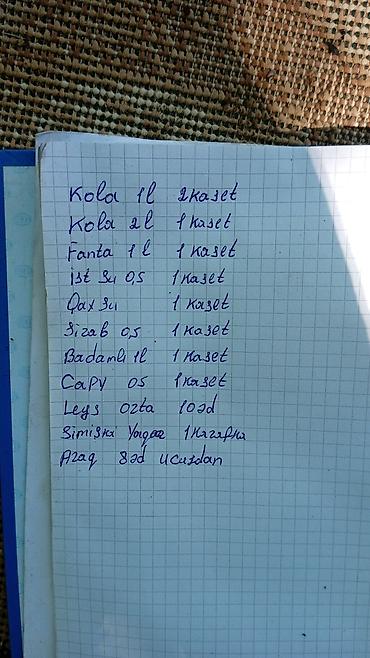 Kola 1l 2 kaset
Kola 2l 1 kaset
Fanta 1l 1 kaset
ist Su 0,5 1 kaset
Qax Su 1 kaset
Sirab 0,5 1 kaset
Badamlı 1l 1 kaset
Capy 05 1 kaset
Leys Orta 10 əd
Simiska 1 karafka
Araq 8 əd ucuzdan